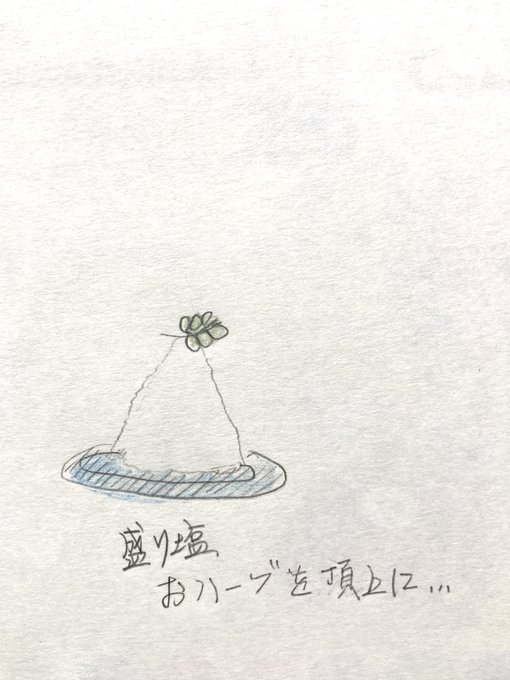 盛り塩
おハーブを頂上に...